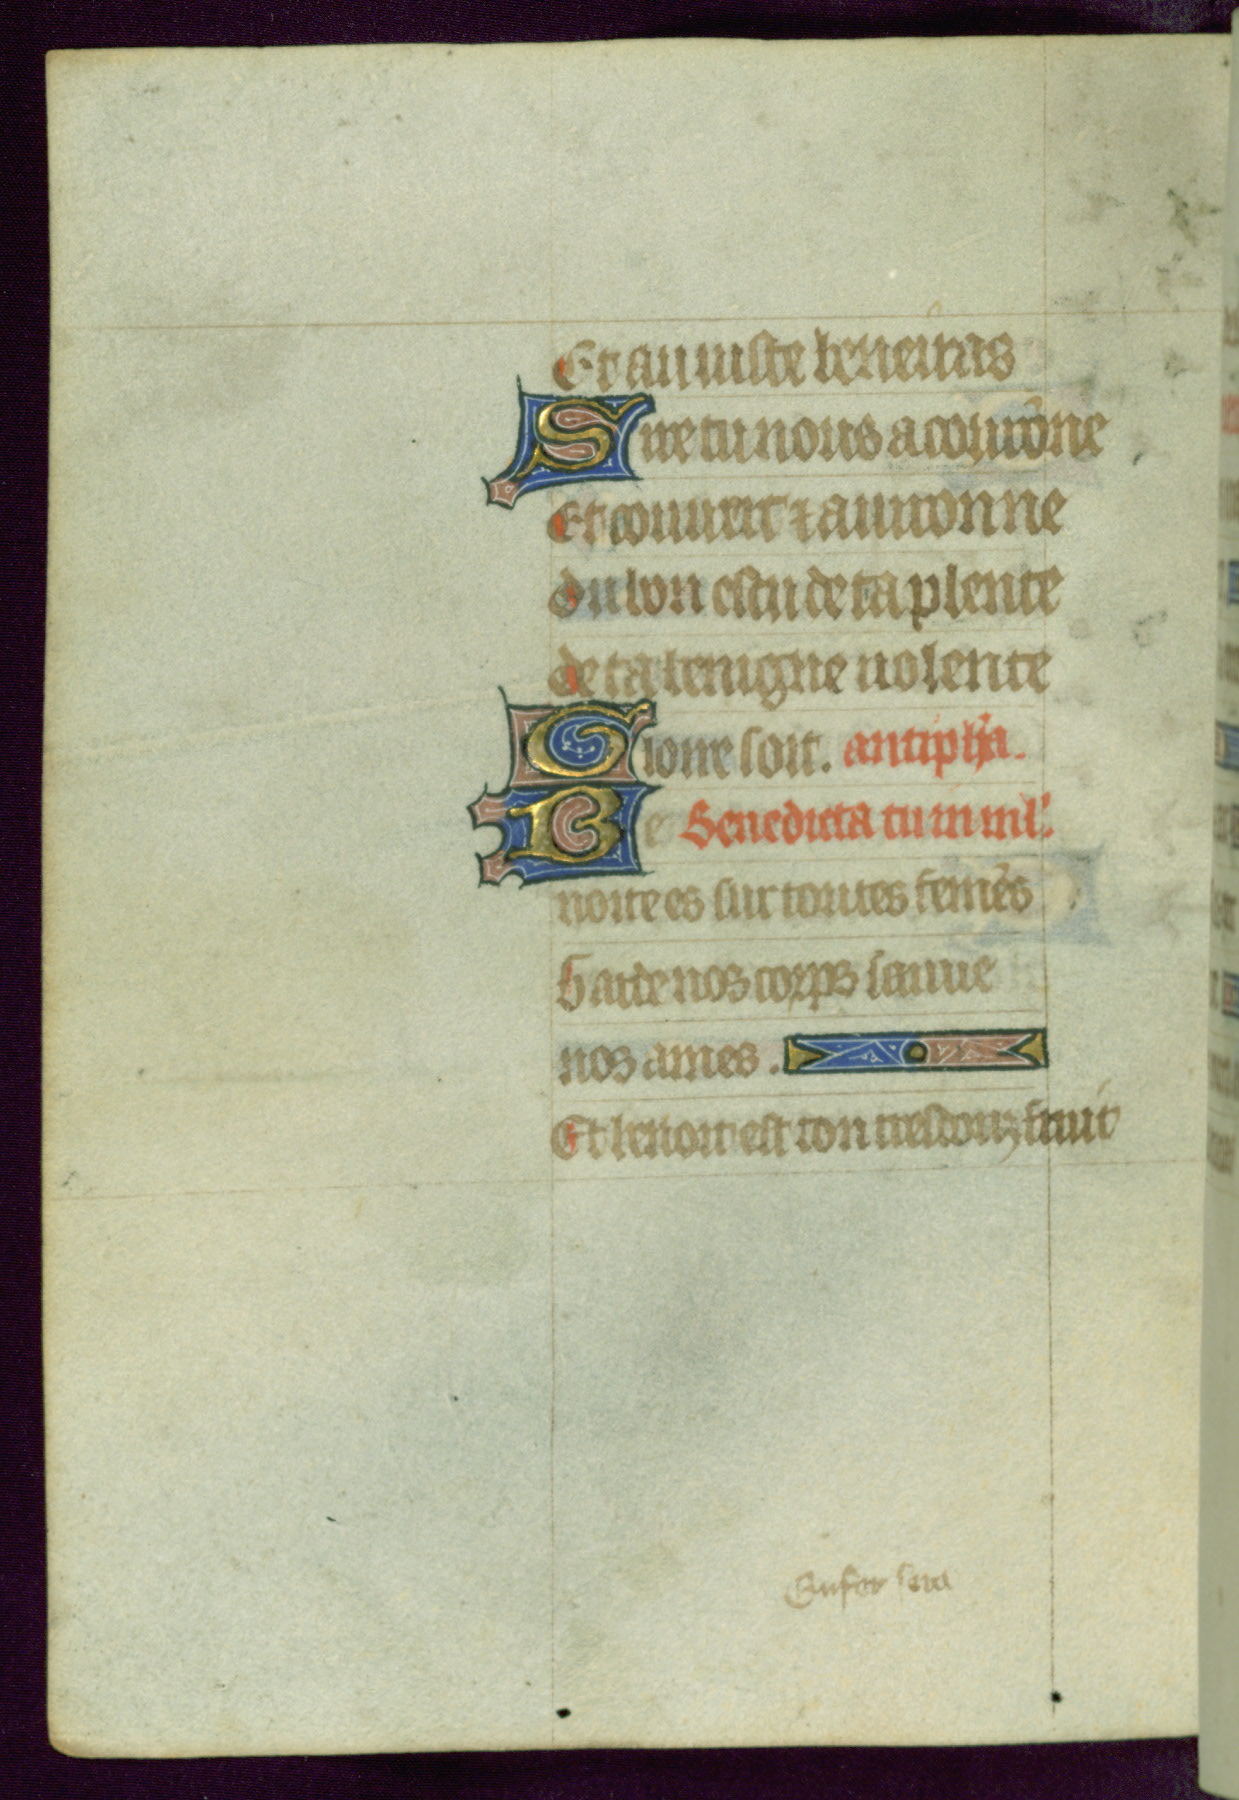 Et au iuste beneiras
Sire tu nous a courōne
Et couuert ⁊ auironne
du bon escu de ta plente
de ta benigne uolente
Gloire soit. antiph̄a.
Be Benedicta tu in ml'.
noite es sur toutes femēs
Garde nos corps sauue
nos ames.
Et benoit est ton tresdouz fruit
Enfer sera